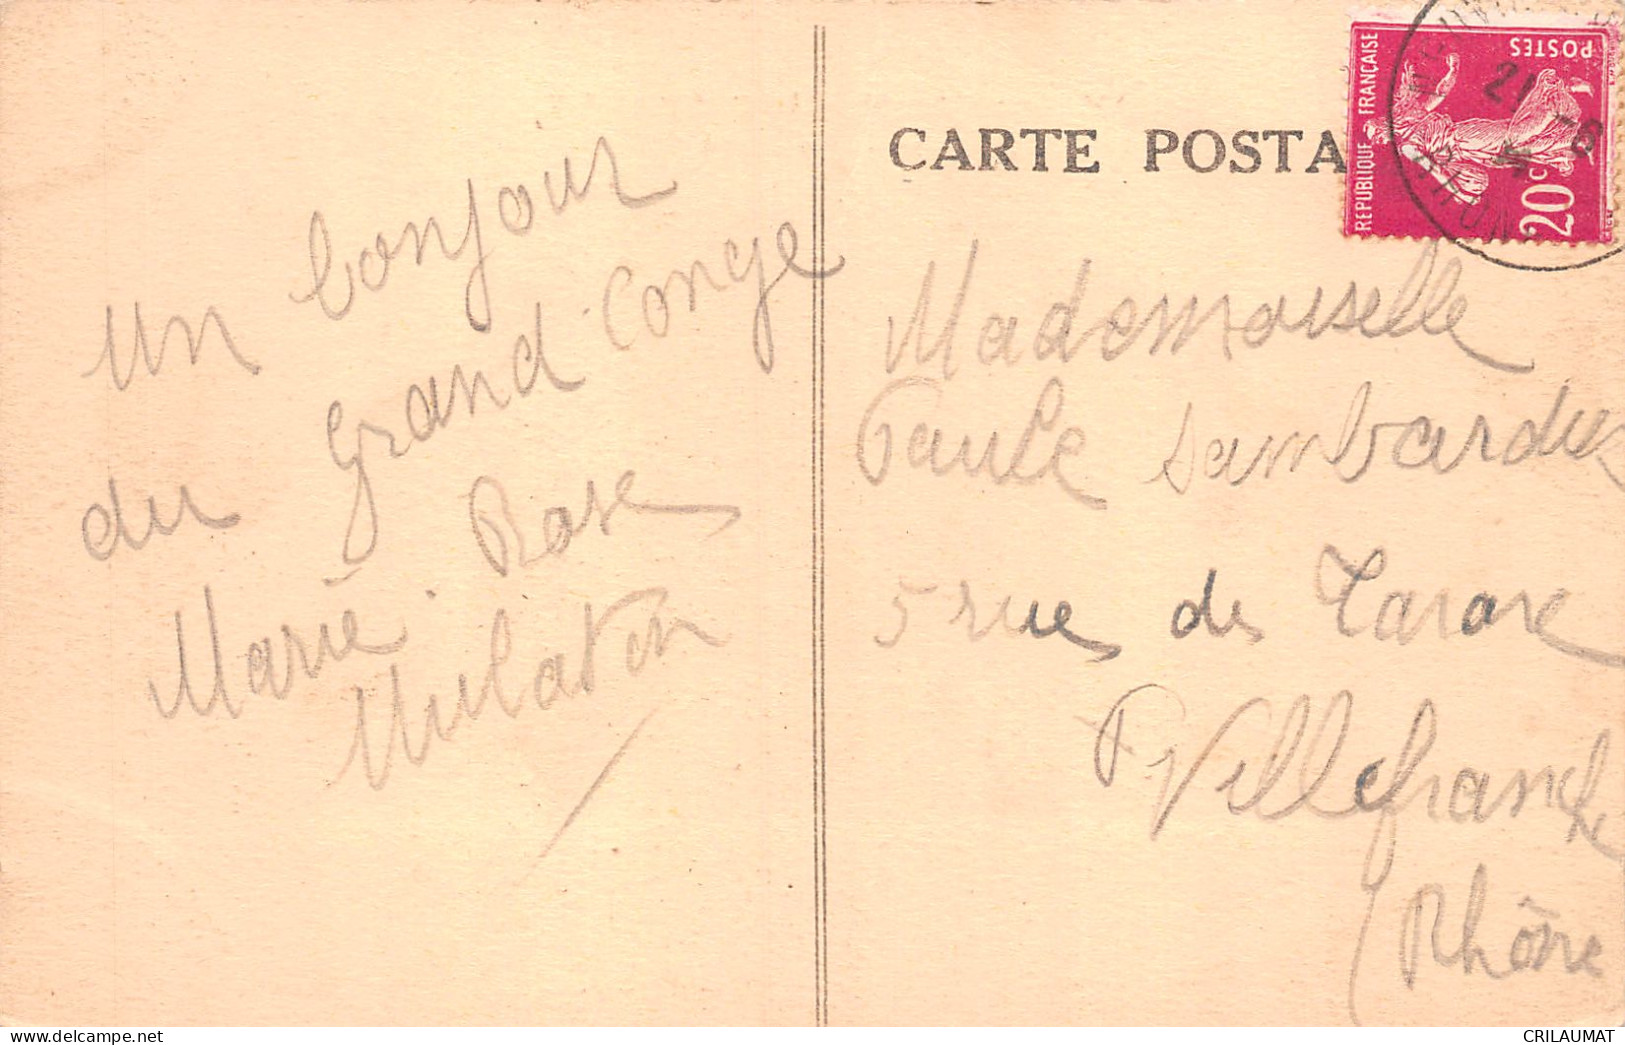 CARTE POSTA
REPUBLIQUE FRANÇAISE
POSTES
20c
21 -6
RHONE
un bonjour
du grand Congé
Marie Rose
Mulaton
Mademoiselle
Paule Sambardier
5 rue de Tarare
Villefranche
Rhône
delcampe.net
CRILAUMAT